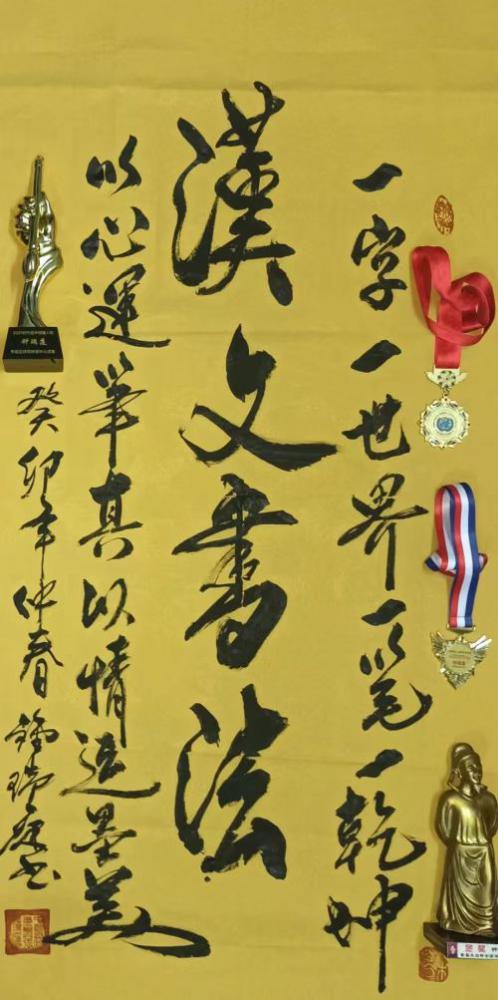 一字一世界一笔一乾坤
漢文書法
以心運筆真以情造墨美
癸卯年仲春